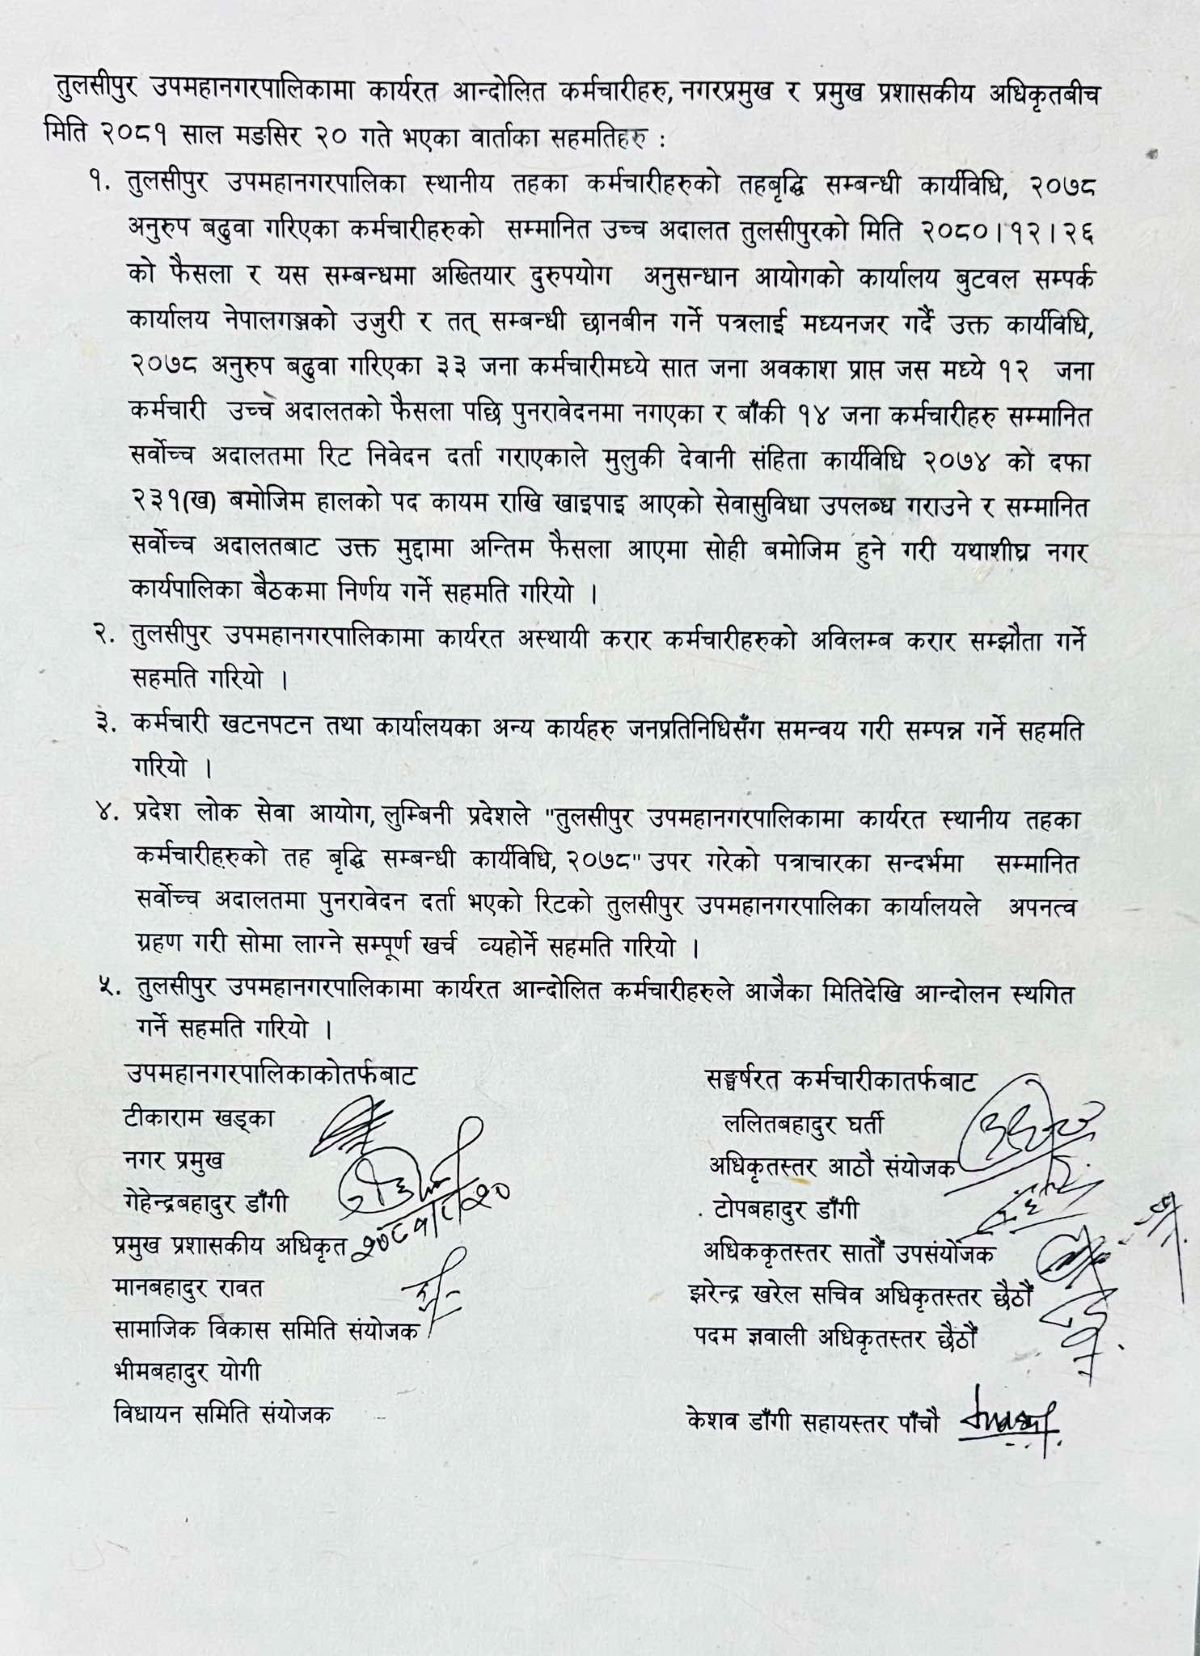 तुलसीपुर उपमहानगरपालिकामा कार्यरत आन्दोलित कर्मचारीहरु, नगरप्रमुख र प्रमुख प्रशासकीय अधिकृतबीच
मिति २०८१ साल मङसिर २० गते भएका वार्ताका सहमतिहरु :
१. तुलसीपुर उपमहानगरपालिका स्थानीय तहका कर्मचारीहरुको तहबृद्धि सम्बन्धी कार्यविधि, २०७८
अनुरुप बढुवा गरिएका कर्मचारीहरुको सम्मानित उच्च अदालत तुलसीपुरको मिति २०८०।१२।२६
को फैसला र यस सम्बन्धमा अख्तियार दुरुपयोग अनुसन्धान आयोगको कार्यालय बुटवल सम्पर्क
कार्यालय नेपालगञ्जको उजुरी र तत् सम्बन्धी छानबीन गर्ने पत्रलाई मध्यनजर गर्दै उक्त कार्यविधि,
२०७८ अनुरुप बढुवा गरिएका ३३ जना कर्मचारीमध्ये सात जना अवकाश प्राप्त जस मध्ये १२ जना
कर्मचारी उच्च अदालतको फैसला पछि पुनरावेदनमा नगएका र बाँकी १४ जना कर्मचारीहरु सम्मानित
सर्वोच्च अदालतमा रिट निवेदन दर्ता गराएकाले मुलुकी देवानी संहिता कार्यविधि २०७४ को दफा
२३१(ख) बमोजिम हालको पद कायम राखि खाइपाइ आएको सेवासुविधा उपलब्ध गराउने र सम्मानित
सर्वोच्च अदालतबाट उक्त मुद्दामा अन्तिम फैसला आएमा सोही बमोजिम हुने गरी यथाशीघ्र नगर
कार्यपालिका बैठकमा निर्णय गर्ने सहमति गरियो ।
२. तुलसीपुर उपमहानगरपालिकामा कार्यरत अस्थायी करार कर्मचारीहरुको अविलम्ब करार सम्झौता गर्ने
सहमति गरियो ।
३. कर्मचारी खटनपटन तथा कार्यालयका अन्य कार्यहरु जनप्रतिनिधिसँग समन्वय गरी सम्पन्न गर्ने सहमति
गरियो ।
४. प्रदेश लोक सेवा आयोग, लुम्बिनी प्रदेशले "तुलसीपुर उपमहानगरपालिकामा कार्यरत स्थानीय तहका
कर्मचारीहरुको तह बृद्धि सम्बन्धी कार्यविधि, २०७८" उपर गरेको पत्राचारका सन्दर्भमा सम्मानित
सर्वोच्च अदालतमा पुनरावेदन दर्ता भएको रिटको तुलसीपुर उपमहानगरपालिका कार्यालयले अपनत्व
ग्रहण गरी सोमा लाग्ने सम्पूर्ण खर्च व्यहोर्ने सहमति गरियो ।
५. तुलसीपुर उपमहानगरपालिकामा कार्यरत आन्दोलित कर्मचारीहरुले आजैका मितिदेखि आन्दोलन स्थगित
गर्ने सहमति गरियो ।
उपमहानगरपालिकाकोतर्फबाट
टीकाराम खड्का
नगर प्रमुख
गेहेन्द्रबहादुर डाँगी
प्रमुख प्रशासकीय अधिकृत २०८१/८/२०
मानबहादुर रावत
सामाजिक विकास समिति संयोजक
भीमबहादुर योगी
विधायन समिति संयोजक
सङ्घर्षरत कर्मचारीकातर्फबाट
ललितबहादुर घर्ती
अधिकृतस्तर आठौ संयोजक
टोपबहादुर डाँगी
अधिककृतस्तर सातौं उपसंयोजक
झरेन्द्र खरेल सचिव अधिकृतस्तर छैठौं
पदम ज्ञवाली अधिकृतस्तर छैठौं
केशव डाँगी सहायस्तर पाँचौ